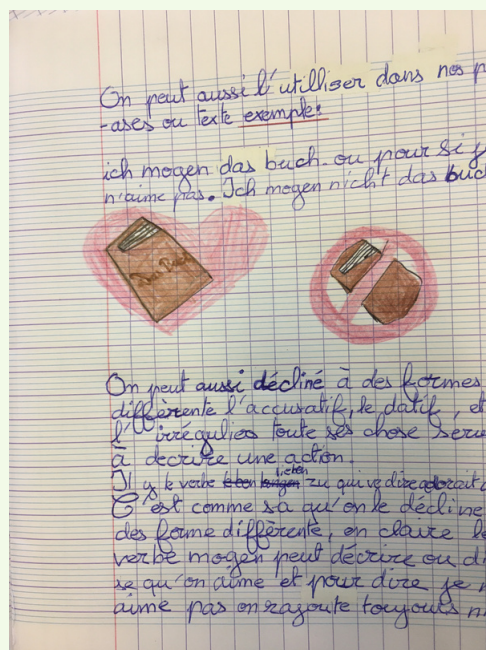 On peut aussi l'utilliser dans nos
-ases ou texte exemple:
ich mogen das buch. ou pour si
n'aime pas. Ich mogen nicht das buc
Das Buch
On peut aussi décliné à des formes
différente l'accusatif, le datif, et
l'irrégulies toute ses chose
à decrire une action.
Il y le verbe lieben zu qui ve dire
C'est comme sa qu'on le décline
des forme différente, en claire le
verbe mogen peut décrire ou di
se qu'on aime et pour dire je
aime pas on razoute toujours